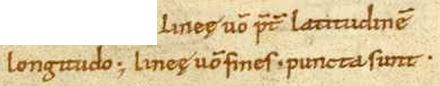 lineę uo̅ p̅t̅ latitudine̅
longitudo ; lineę uo̅ fines · puncta sunt ·